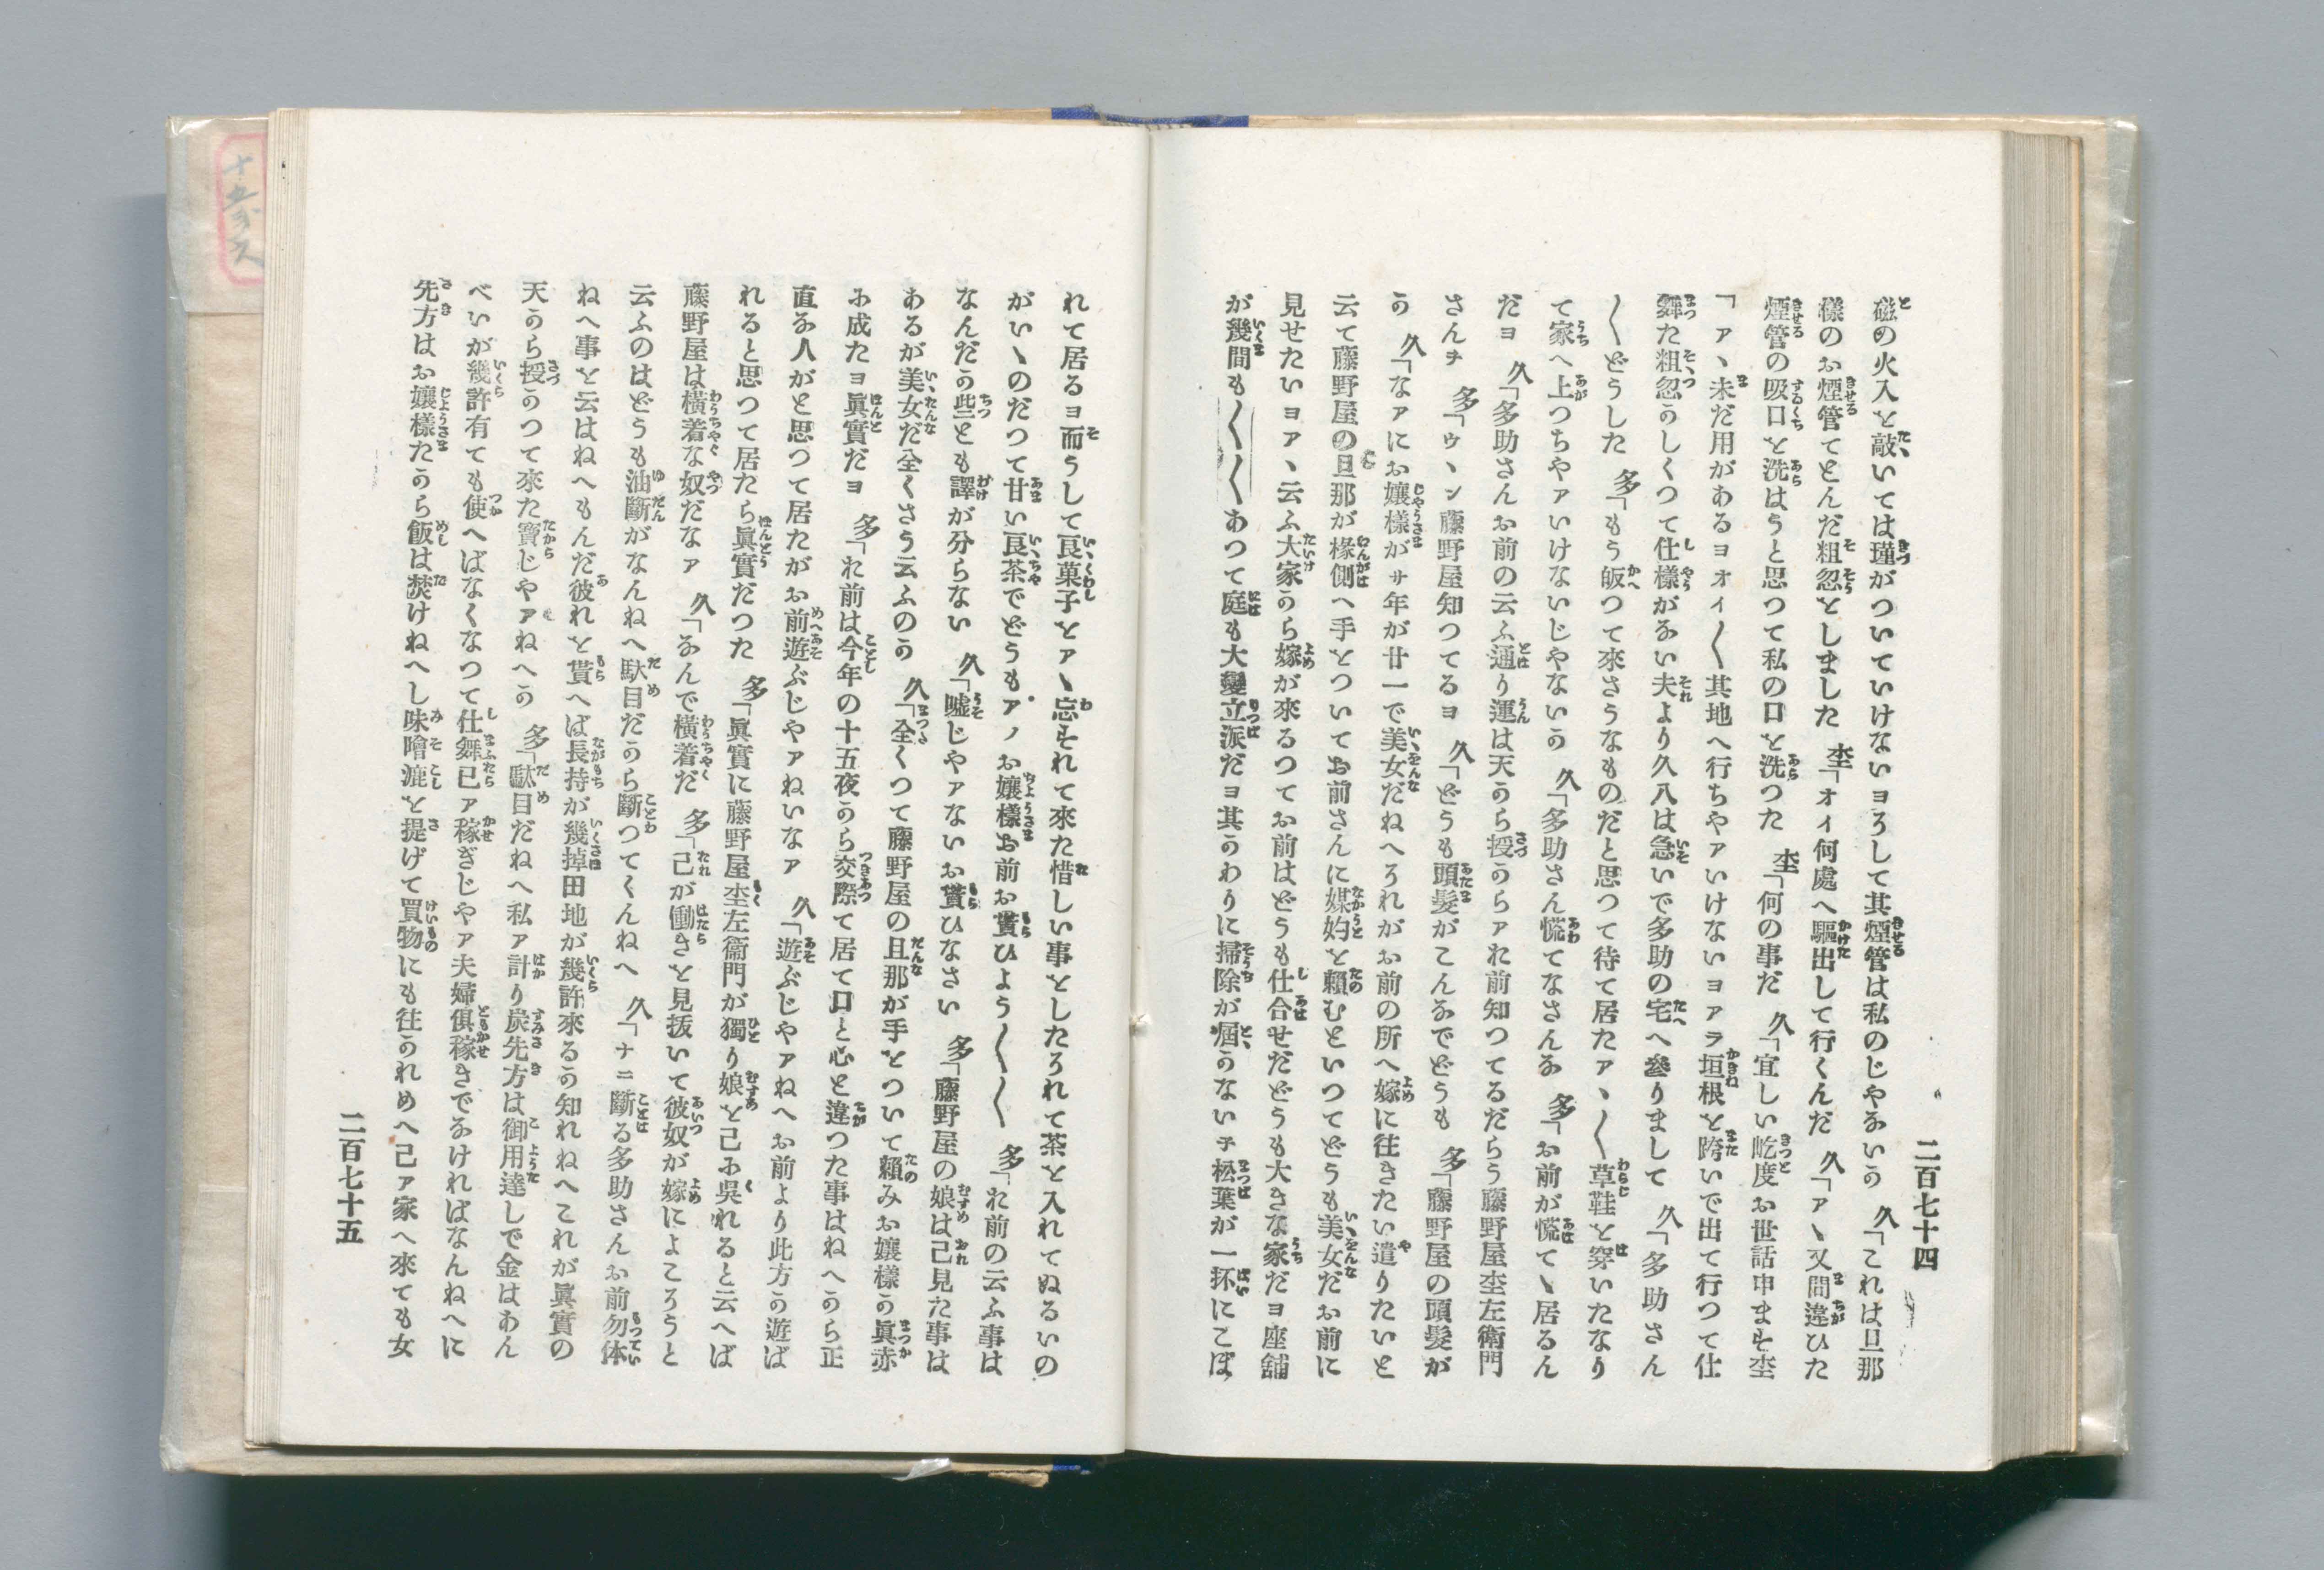 二百七十四
磁の火入を敲いては瑾がついていけないヨろして其煙管は私のじやあいか　久「これは旦那
様のお煙管てとんだ粗忽をしました　杢「オイ何處へ驅出して行くんだ　久「アヽ又間違ひた
煙管の吸口を洗はうと思つて私の口を洗つた　杢「何の事だ　久「宜しい屹度お世話申ませ杢
「アヽ未だ用があるヨオイ〱其地へ行ちやァいけないヨアラ垣根を跨いで出て行つて仕
舞た粗忽かしくつて仕樣がない夫より久八は急いで多助の宅へ參りまして　久「多助さん
〱どうした　多「もう皈つて來さうなものだと思つて待て居たアヽ〱草鞋を穿いたなり
て家へ上つちやァいけないじやないか　久「多助さん慌てなさんな　多「お前が慌てヽ居るん
だヨ　久「多助さんお前の云ふ通り運は天から授からァれ前知つてるだらう藤野屋杢左衛門
さんヲ　多「ウヽン藤野屋知つてるヨ　久「どうも頭髮がこんなでどうも　多「藤野屋の頭髮が
か　久「なァにお孃樣がサ年が廿一で美女だねへろれがお前の所へ嫁に往きたい遣りたいと
云て藤野屋の旦那が椽側へ手をついてお前さんに媒妁を賴むといつてどうも美女だお前に
見せたいヨアヽ云ふ大家から嫁が來るつてお前はどうも仕合せだどうも大きな家だヨ座舖
が幾間も〱〱あつて庭も大變立派だヨ其かわりに掃除が屆かないヲ松葉が一抔にこぼ
れて居るヨ而うして良菓子をアヽ忘それて來た惜しい事をしたろれて茶を入れてぬるいの
がいヽのだつて甘い良茶でどうもアノお孃樣お前お貰ひよう〱〱　多「れ前の云ふ事は
なんだか些とも譯が分らない　久「嘘じやァないお貰ひなさい　多「藤野屋の娘は己見た事は
あるが美女だ全くさう云ふのか　久「全くつて藤野屋の旦那が手をついて賴みお孃樣か眞赤
お成たヨ眞實だヨ　多「れ前は今年の十五夜から交際て居て口と心と違つた事はねへから正
直な人がと思つて居たがお前遊ぶじやァねいなァ　久「遊ぶじやァねへお前より此方か遊ば
れると思つて居たら眞實だつた　多「眞實に藤野屋杢左衞門が獨り娘を己お吳れると云へば
藤野屋は橫着な奴だなァ　久「なんで橫着だ　多「己が働きを見拔いて彼奴が嫁によころうと
云ふのはどうも油斷がなんねへ駄目だから斷つてくんねへ　久「ナニ斷る多助さんお前勿体
ねへ事を云はねへもんだ彼れを貰へば長持が幾掉田地が幾許來るか知れねへこれが眞實の
天から授かつて來た寶じやァねへか　多「駄目だねへ私ァ計り炭先方は御用達しで金はあん
べいが幾許有ても使へばなくなつて仕舞已ァ稼ぎじやァ夫婦俱稼きでなければなんねへに
先方はお孃樣だから飯は焚けねへし味噌漉を提げて買物にも往かれめへ己ァ家へ來ても女
二百七十五